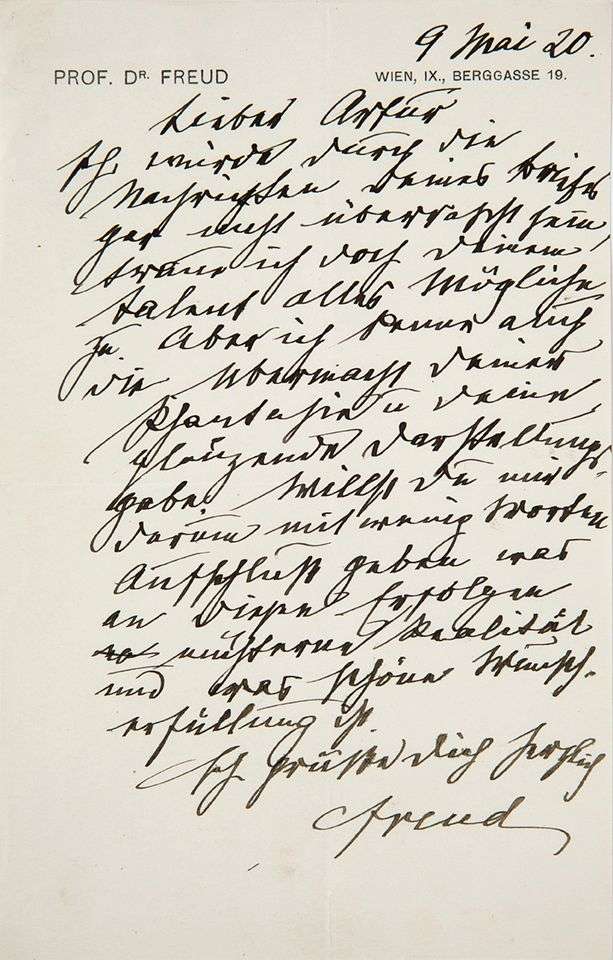 9 Mai 20.
PROF. DR. FREUD
WIEN, IX., BERGGASSE 19.
Lieber Artur
Ich würde durch die
Nachrichten Deines Briefes
gar nicht überrascht sein,
traue ich doch Deinem
Talent alles Mögliche
zu. Aber ich kenne auch
die Übermacht Deiner
Phantasie u Deine
glänzende Darstellungs-
gabe. Willst Du mir
darum mit wenig Worten
Aufschluß geben was
an diesen Erfolgen
nüchterne Realität
und was schöne Wunsch-
erfüllung ist.
Ich grüße Dich herzlich
Freud